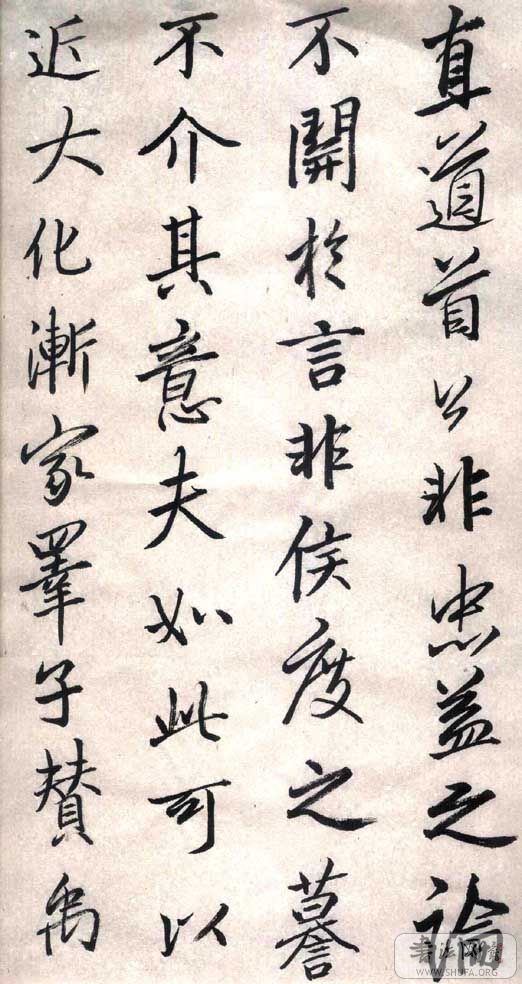 直道首公非忠益之論
不關於言非侯度之謩
不介其意夫如此可以
近大化漸家睪子贊禹
WWW.SHUFA.ORG